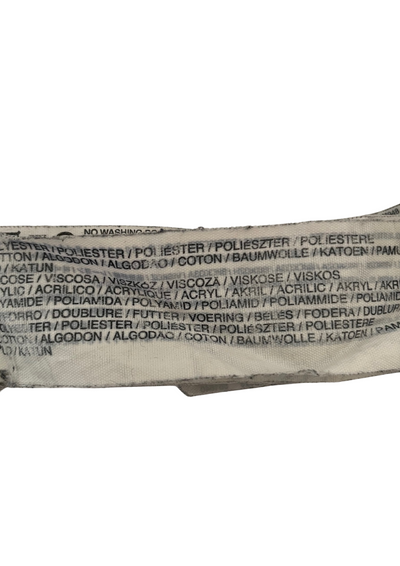 NO WASHING
LYESTER / POLIESTER / POLIÉSTER / POLIÉSZTER / POLIESTERE
TTON / ALGODON / ALGODAO / COTON / BAUMWOLLE / KATOEN / PAMU
O / KATUN
COSE / VISCOSA / VISZKÓZ / VISCOZA / VISKOSE / VISKOS
RYLIC / ACRILICO / ACRYLIQUE / ACRYL / AKRIL / ACRILIC / AKRYL / AKRI
YAMIDE POLIAMIDA / POLYAMID / POLIAMID / POLIAMMIDE / POLIAMID
FORRO / DOUBLURE / FUTTER / VOERING / BÉLÉS / FODERA / DUBLURE
TER / POLIESTER / POLIÉSTER / POLIÉSZTER / POLIESTERE
COTTON / ALGODON / ALGODAO / COTON / BAUMWOLLE / KATOEN / PAM
LO / KATUN